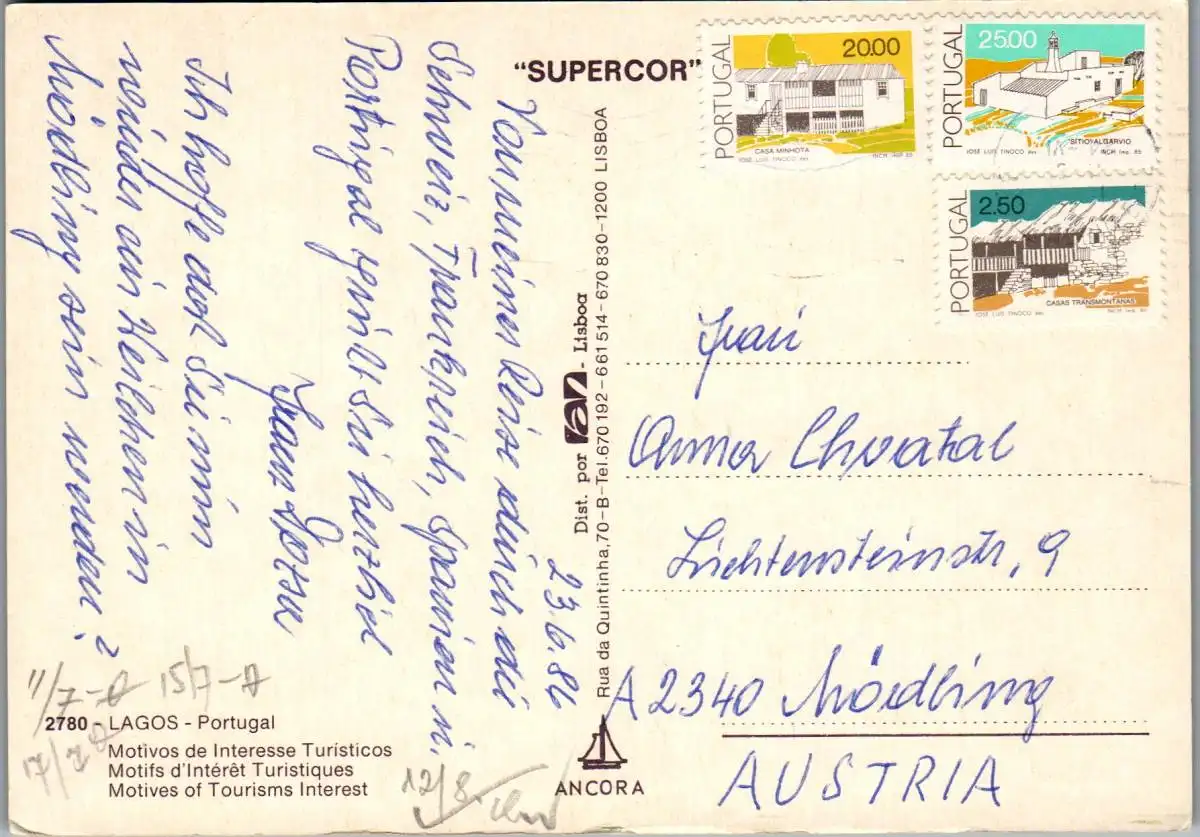 "SUPERCOR"
PORTUGAL
20.00
CASA MINHOTA
JOSÉ LUIS TINOCO des
INCM IMP 85
PORTUGAL
25.00
SITIO ALGARVIO
JOSÉ LUIS TINOCO des
INCM Imp. 85
PORTUGAL
2.50
CASAS TRANSMONTANAS
JOSÉ LUIS TINOCO des
INCM Imp. 85
23.6.86
Von meiner Reise durch die
Schweiz, Frankreich, Spanien u.
Portugal grüßt Sie herzlich
Franz
Ich hoffe daß Sie mir
wieder ein in
Mödling sein werden?
Dist. por - Lisboa
Rua da Quintinha, 70-B-Tel. 670 192-661 514-670 830-1200 LISBOA
Frau
Anna Chvatal
Liechtensteinstr. 9
A 2340 Mödling
AUSTRIA
11/7-
15/7-
17/7
12/8.
2780 - LAGOS - Portugal
Motivos de Interesse Turísticos
Motifs d'Intérêt Turistiques
Motives of Tourisms Interest
ANCORA